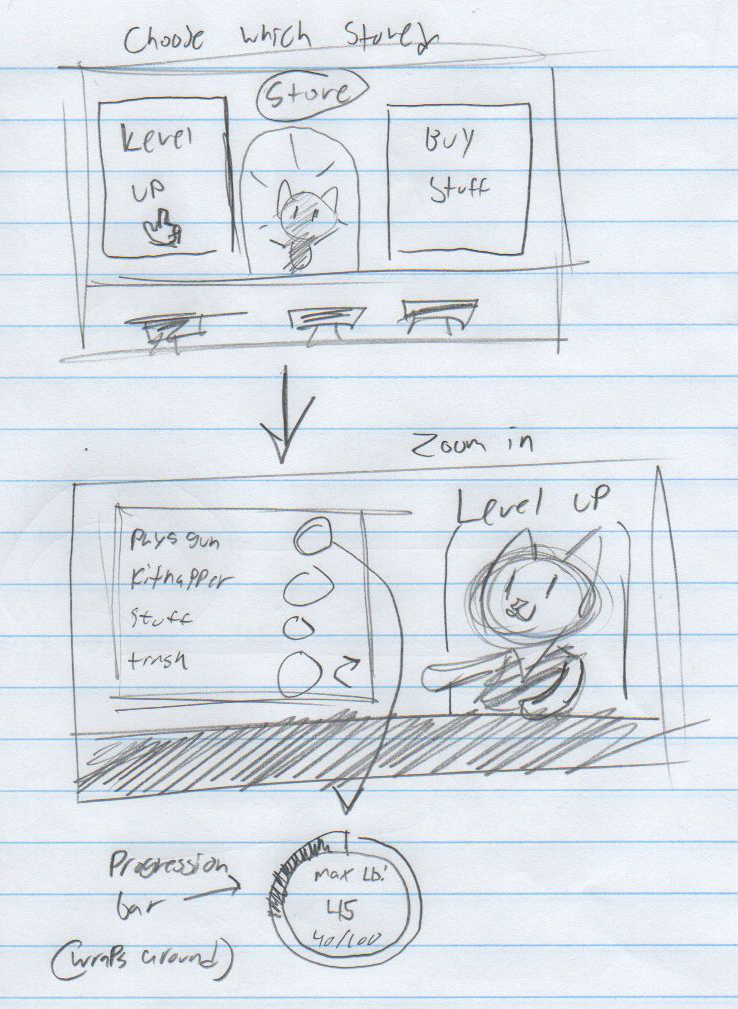 Choose which Store
Store
Level
UP
BUY
Stuff
Zoom in
Level UP
Phys gun
Kitnapper
Stuff
trash
Progression
bar
(wraps around)
max Lb!
45
40/100